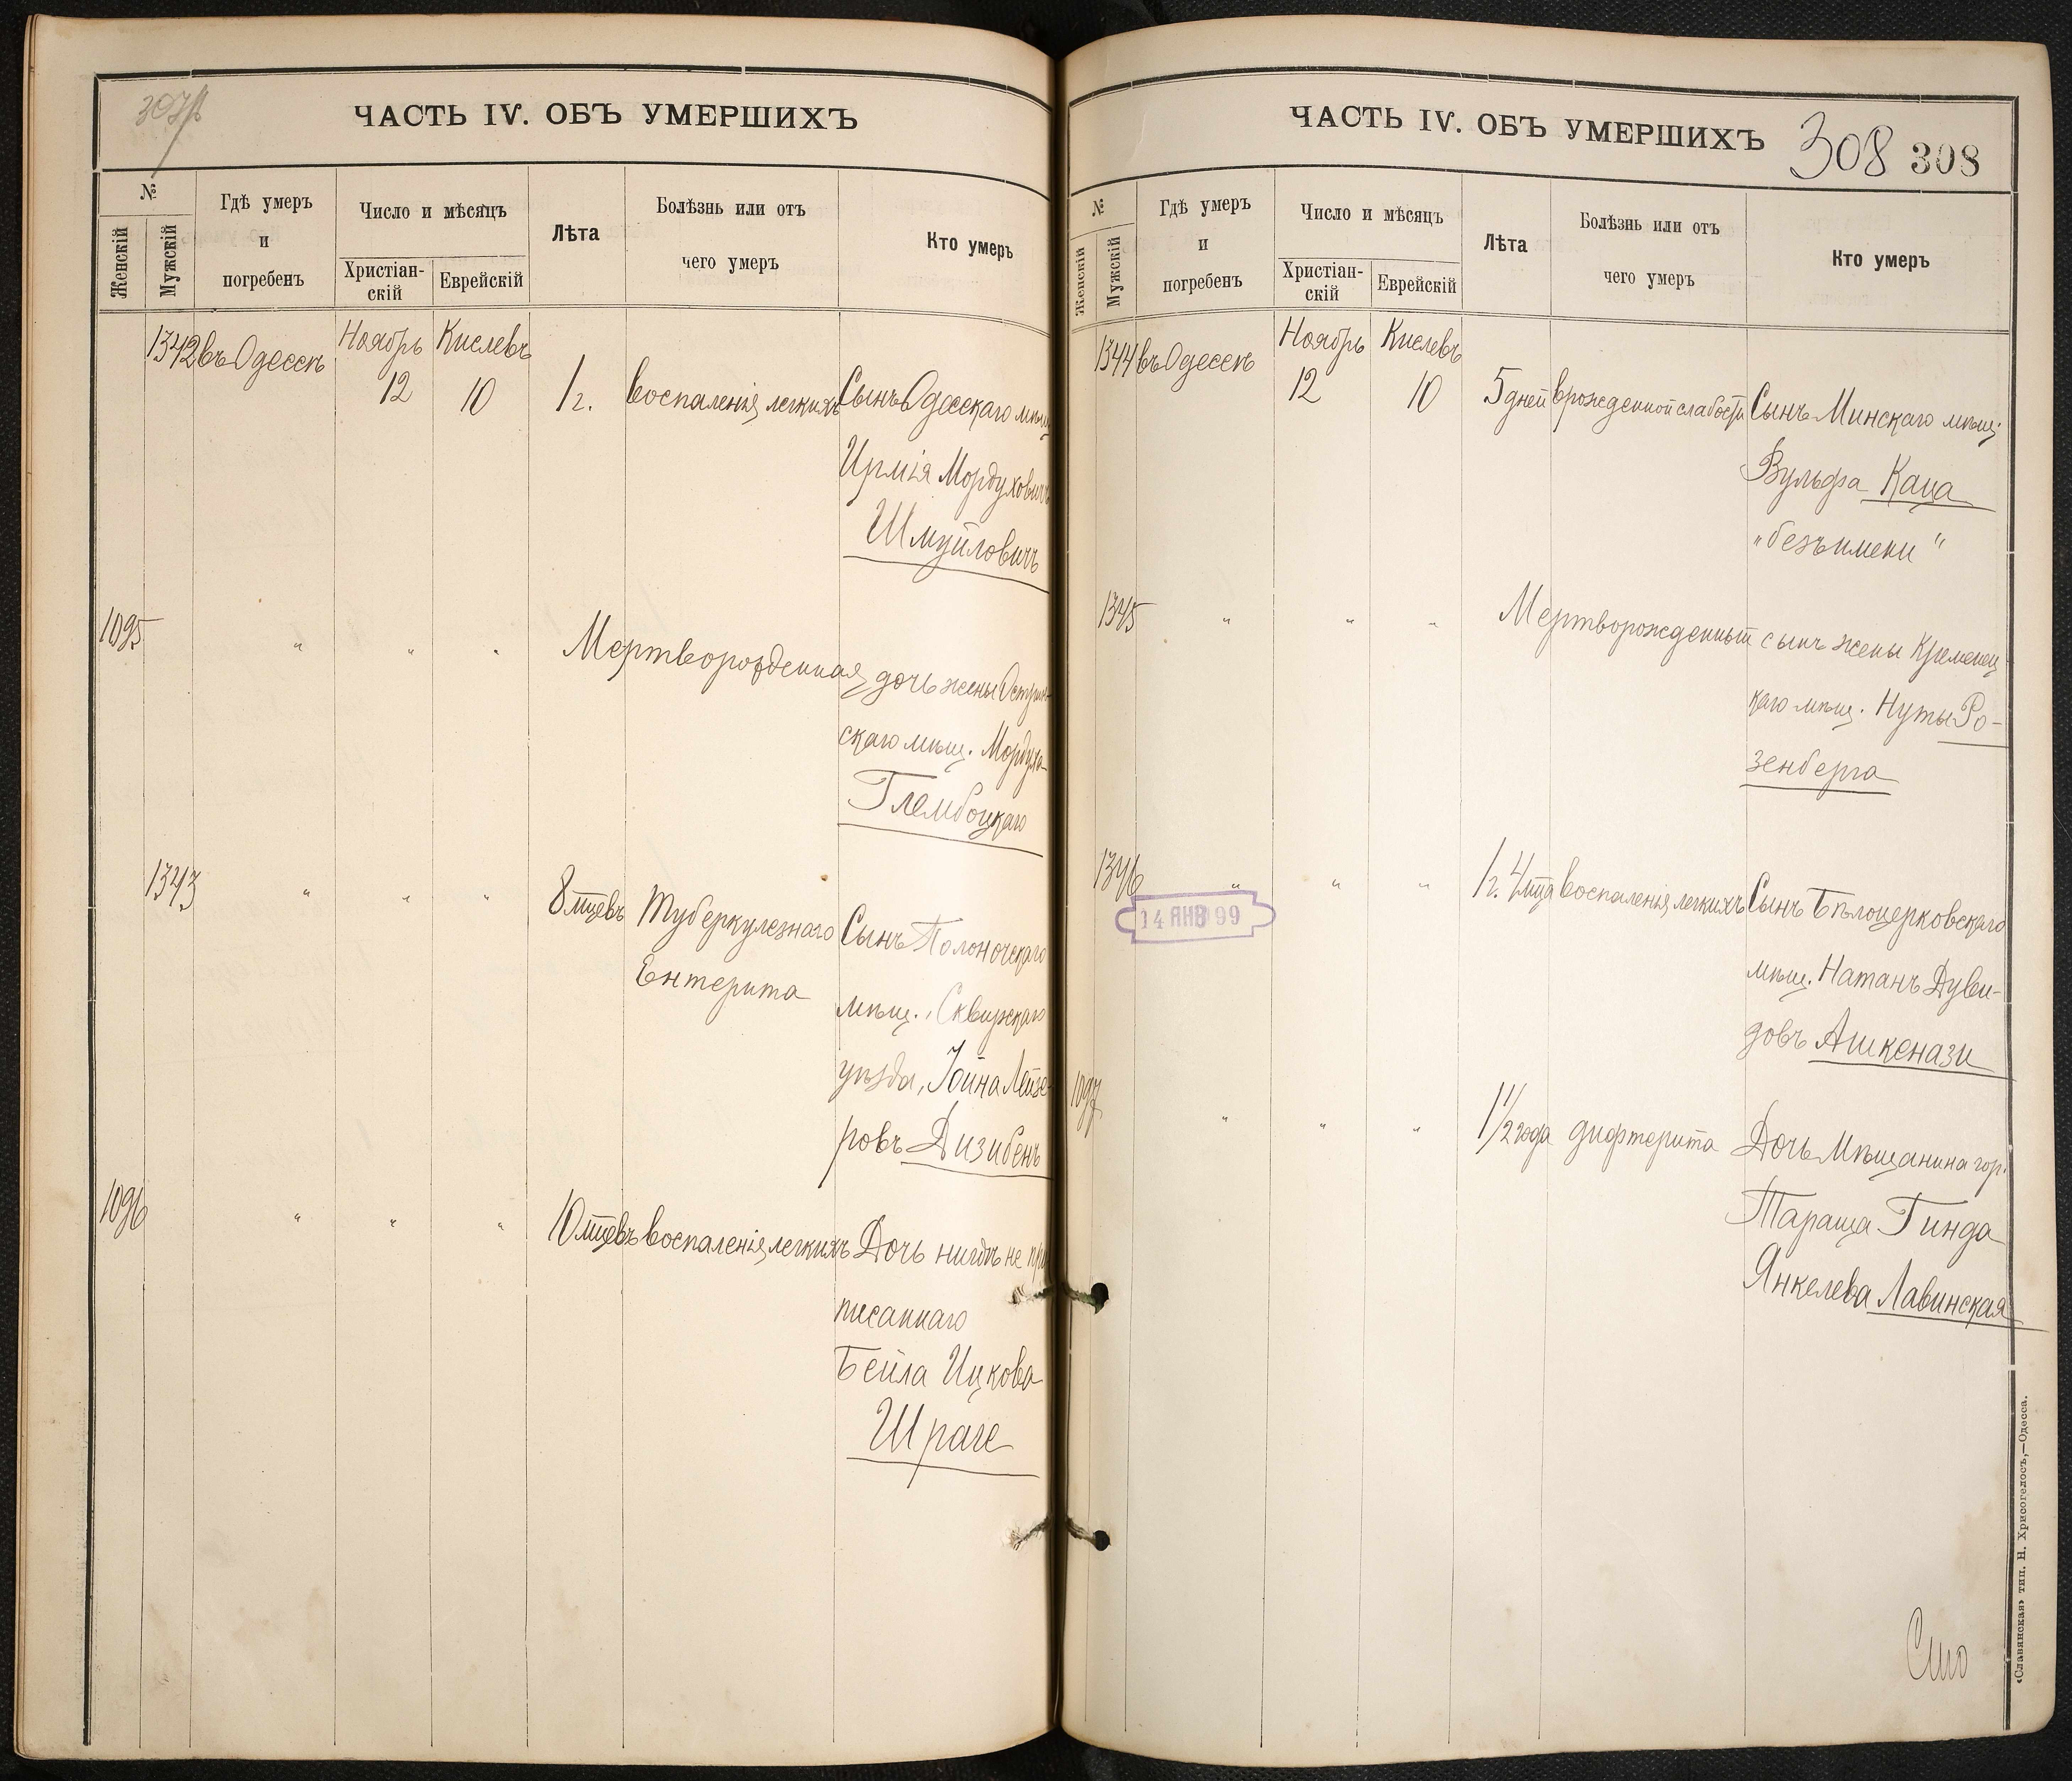 ЧАСТЬ IV. ОБЪ УМЕРШИХЪ
№
Женскій
Мужскій
Гдѣ умеръ
и
погребенъ
Число и мѣсяцъ
Христіан-
скій
Еврейскій
Лѣта
Болѣзнь или отъ
чего умеръ
Кто умеръ
1342 въ Одессѣ Ноябрь 12 Кислевъ 10 1 г. воспаленія легкихъ Сынъ Одесскаго мѣщ
Ирмія Мордуховичъ
Шмуйловичъ
1095 " " " Мертворожденная дочь жены
скаго мѣщ. Мордуха
Глембоцкаго
1343 " " " 8 мцевъ Туберкулезнаго Сынъ
Ентерита
мѣщ., Сквирскаго
уѣзда, Іойна Лейзе-
ровъ Дизибенъ
1096 " " " 10 мцевъ воспаленія легкихъ Дочь нигдѣ не при
писаннаго
Бейла Ицкова
Шраге
ЧАСТЬ IV. ОБЪ УМЕРШИХЪ 308 308
№
Женскій
Мужскій
Гдѣ умеръ
и
погребенъ
Число и мѣсяцъ
Христіан-
скій
Еврейскій
Лѣта
Болѣзнь или отъ
чего умеръ
Кто умеръ
1344 въ Одессѣ Ноябрь 12 Кислевъ 10 5 дней врожденной слабости Сынъ Минскаго мѣщ.
Вульфа Каца
"безъ имени"
1345 " " " Мертворожденный сынъ жены Кременец
каго мѣщ. Нуты Ро-
зенберга
1346 " " " 1 г. 4 мца воспаленія легкихъ Сынъ Бѣлоцерковскаго
14 ЯНВ 99
мѣщ. Натанъ Дуви-
довъ Ашкенази
1097 " " " 1 1/2 года дифтерита Дочь Мѣщанина гор.
Тараща Гинда
Янкелева Лавинская
«Славянская» тип. Н. Хрисогелосъ,—Одесса.